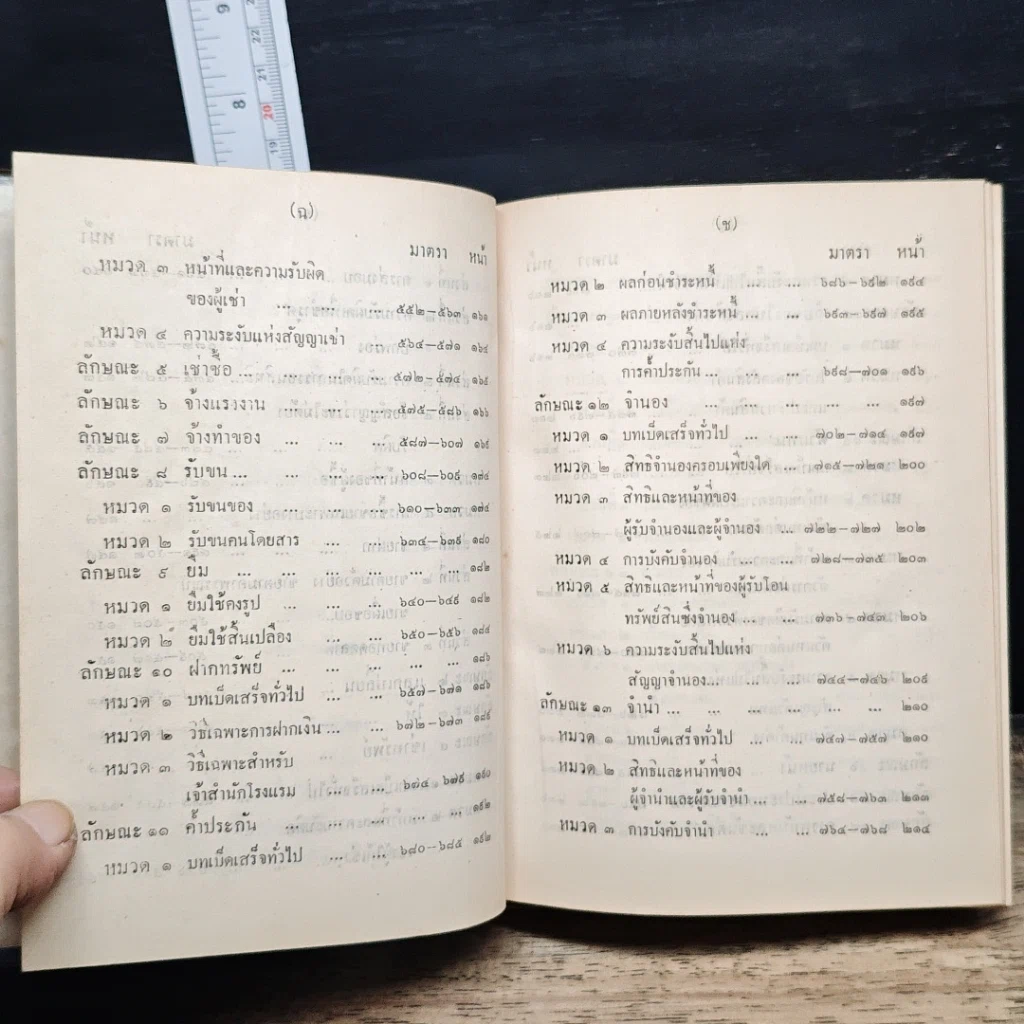 9
8
22
21
20
19
(ฉ)
มาตรา หน้า
หมวด ๓ หน้าที่และความรับผิด
ของผู้เช่า ... ... ... ๕๕๒—๕๖๓ ๑๖๑
หมวด ๔ ความระงับแห่งสัญญาเช่า ๕๖๔—๕๗๑ ๑๖๔
ลักษณะ ๕ เช่าซื้อ ... ... ... ... ๕๗๒—๕๗๔ ๑๖๕
ลักษณะ ๖ จ้างแรงงาน ... ... ... ๕๗๕—๕๘๖ ๑๖๖
ลักษณะ ๗ จ้างทำของ ... ... ... ๕๘๗—๖๐๗ ๑๖๙
ลักษณะ ๘ รับขน ... ... ... ... ๖๐๘—๖๐๙ ๑๗๔
หมวด ๑ รับขนของ ... ... ... ๖๑๐—๖๓๓ ๑๗๔
หมวด ๒ รับขนคนโดยสาร ... ... ๖๓๔—๖๓๙ ๑๘๐
ลักษณะ ๙ ยืม ... ... ... ... ... ... ๑๘๒
หมวด ๑ ยืมใช้คงรูป ... ... ... ๖๔๐—๖๔๙ ๑๘๒
หมวด ๒ ยืมใช้สิ้นเปลือง ... ... ๖๕๐—๖๕๖ ๑๘๔
ลักษณะ ๑๐ ฝากทรัพย์ ... ... ... ... ... ๑๘๖
หมวด ๑ บทเบ็ดเสร็จทั่วไป ... ... ๖๕๗—๖๗๑ ๑๘๖
หมวด ๒ วิธีเฉพาะการฝากเงิน ... ... ๖๗๒—๖๗๓ ๑๘๙
หมวด ๓ วิธีเฉพาะสำหรับ
เจ้าสำนักโรงแรม ... ... ๖๗๔ ๖๗๙ ๑๙๐
ลักษณะ ๑๑ ค้ำประกัน ... ... ... ... ... ๑๙๒
หมวด ๑ บทเบ็ดเสร็จทั่วไป ... ... ๖๘๐—๖๘๕ ๑๙๒
(ช)
มาตรา หน้า
หมวด ๒ ผลก่อนชำระหนี้ ... ... ๖๘๖—๖๙๒ ๑๙๔
หมวด ๓ ผลภายหลังชำระหนี้ ... ... ๖๙๓—๖๙๗ ๑๙๕
หมวด ๔ ความระงับสิ้นไปแห่ง
การค้ำประกัน ... ... ... ๖๙๘—๗๐๑ ๑๙๖
ลักษณะ ๑๒ จำนอง ... ... ... ... ... ๑๙๗
หมวด ๑ บทเบ็ดเสร็จทั่วไป ... ... ๗๐๒—๗๑๔ ๑๙๗
หมวด ๒ สิทธิจำนองครอบเพียงใด ... ๗๑๕—๗๒๑ ๒๐๐
หมวด ๓ สิทธิและหน้าที่ของ
ผู้รับจำนองและผู้จำนอง ... ๗๒๒—๗๒๗ ๒๐๒
หมวด ๔ การบังคับจำนอง ... ... ๗๒๘—๗๓๕ ๒๐๓
หมวด ๕ สิทธิและหน้าที่ของผู้รับโอน
ทรัพย์สินซึ่งจำนอง ... ... ๗๓๖—๗๔๓ ๒๐๖
หมวด ๖ ความระงับสิ้นไปแห่ง
สัญญาจำนอง... ... ... ๗๔๔—๗๔๖ ๒๐๙
ลักษณะ ๑๓ จำนำ ... ... ... ... ... ... ๒๑๐
หมวด ๑ บทเบ็ดเสร็จทั่วไป ... ... ๗๔๗—๗๕๗ ๒๑๐
หมวด ๒ สิทธิและหน้าที่ของ
ผู้จำนำและผู้รับจำนำ ... ... ๗๕๘—๗๖๓ ๒๑๓
หมวด ๓ การบังคับจำนำ ... ... ๗๖๔—๗๖๘ ๒๑๔